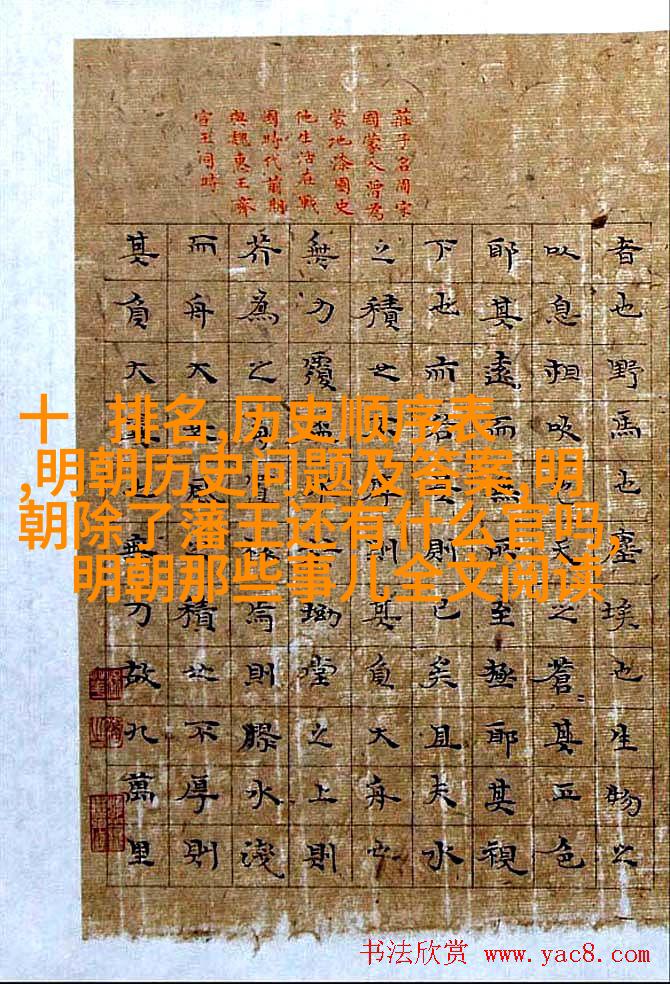 莊子名周宋
國蒙人曾為
蒙地漆園史
他生活在戰
國時代前期
與魏惠王齊
宣王同時
者也野馬也塵埃也生物之
以息相吹也天之蒼〻其正色
耶其遠而無所至極耶其視
下也而若是則已矣且夫水
之積也不厚則其負大舟也
無力覆杯水於坳堂之上則
芥為之舟置杯焉則膠水淺
而舟大也風之積也不厚則
其負大翼也無力故九萬里
十 排名,历史顺序表
,明朝历史问题及答案,明
朝除了藩王还有什么官吗,
明朝那些事儿全文阅读
书法欣赏 www.yac8.com